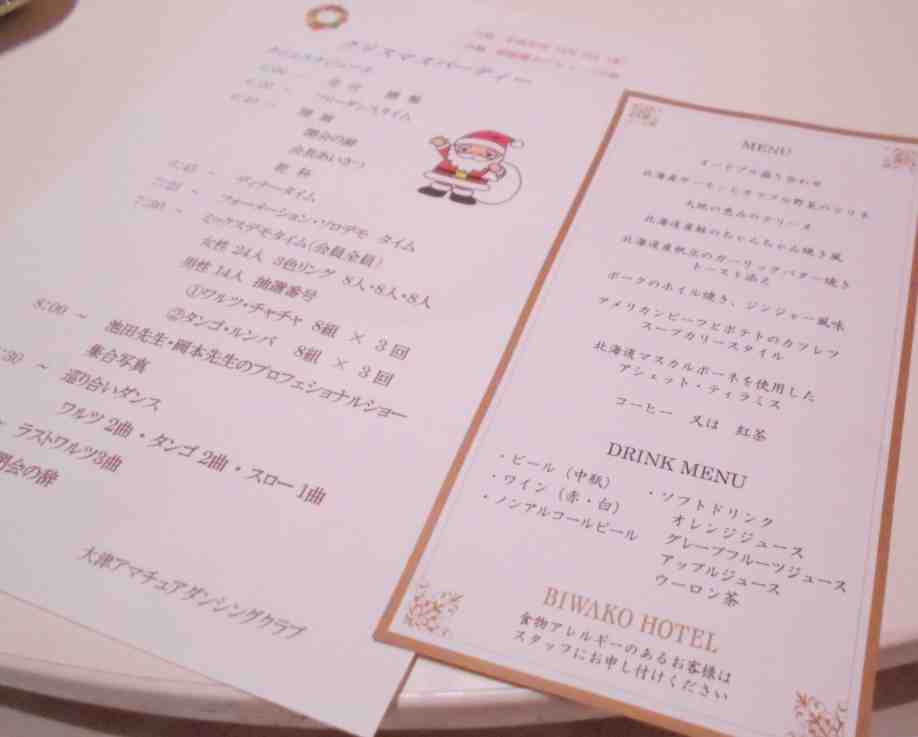 クリスマスパーティー
タイムスケジュール
フリーダンスタイム
開会の辞
会長あいさつ
乾杯
6:45 ~ ディナータイム
7:25 ~ フォーメーション・ソロデモ タイム
7:30 ~ ミックスデモタイム(会員全員)
女性 24人 3色リング 8人・8人・8人
男性 14人 抽選番号
①ワルツ・チャチャ 8組 × 3回
②タンゴ・ルンバ 8組 × 3回
8:00 ~ 池田先生・岡本先生のプロフェショナルショー
集合写真
:30 ~ 巡り合いダンス
ワルツ 2曲・タンゴ 2曲・スロー 1曲
ラストワルツ3曲
閉会の辞
大津アマチュアダンシングクラブ
MENU
オードブル盛り合わせ
北海道サーモンとカラフル野菜のマリネ
大地の恵みのテリーヌ
北海道産鮭のちゃんちゃん焼き風
北海道産帆立のガーリックバター焼き
トースト添え
ポークのホイル焼き、ジンジャー風味
アメリカンビーフとポテトのカフェラ
スープカリースタイル
北海道マスカルポーネを使用した
アシェット・ティラミス
コーヒー 又は 紅茶
DRINK MENU
・ビール（中瓶）
・ワイン（赤・白）
・ノンアルコールビール
・ソフトドリンク
オレンジジュース
グレープフルーツジュース
アップルジュース
ウーロン茶
BIWAKO HOTEL
食物アレルギーのあるお客様は
スタッフにお申し付けください